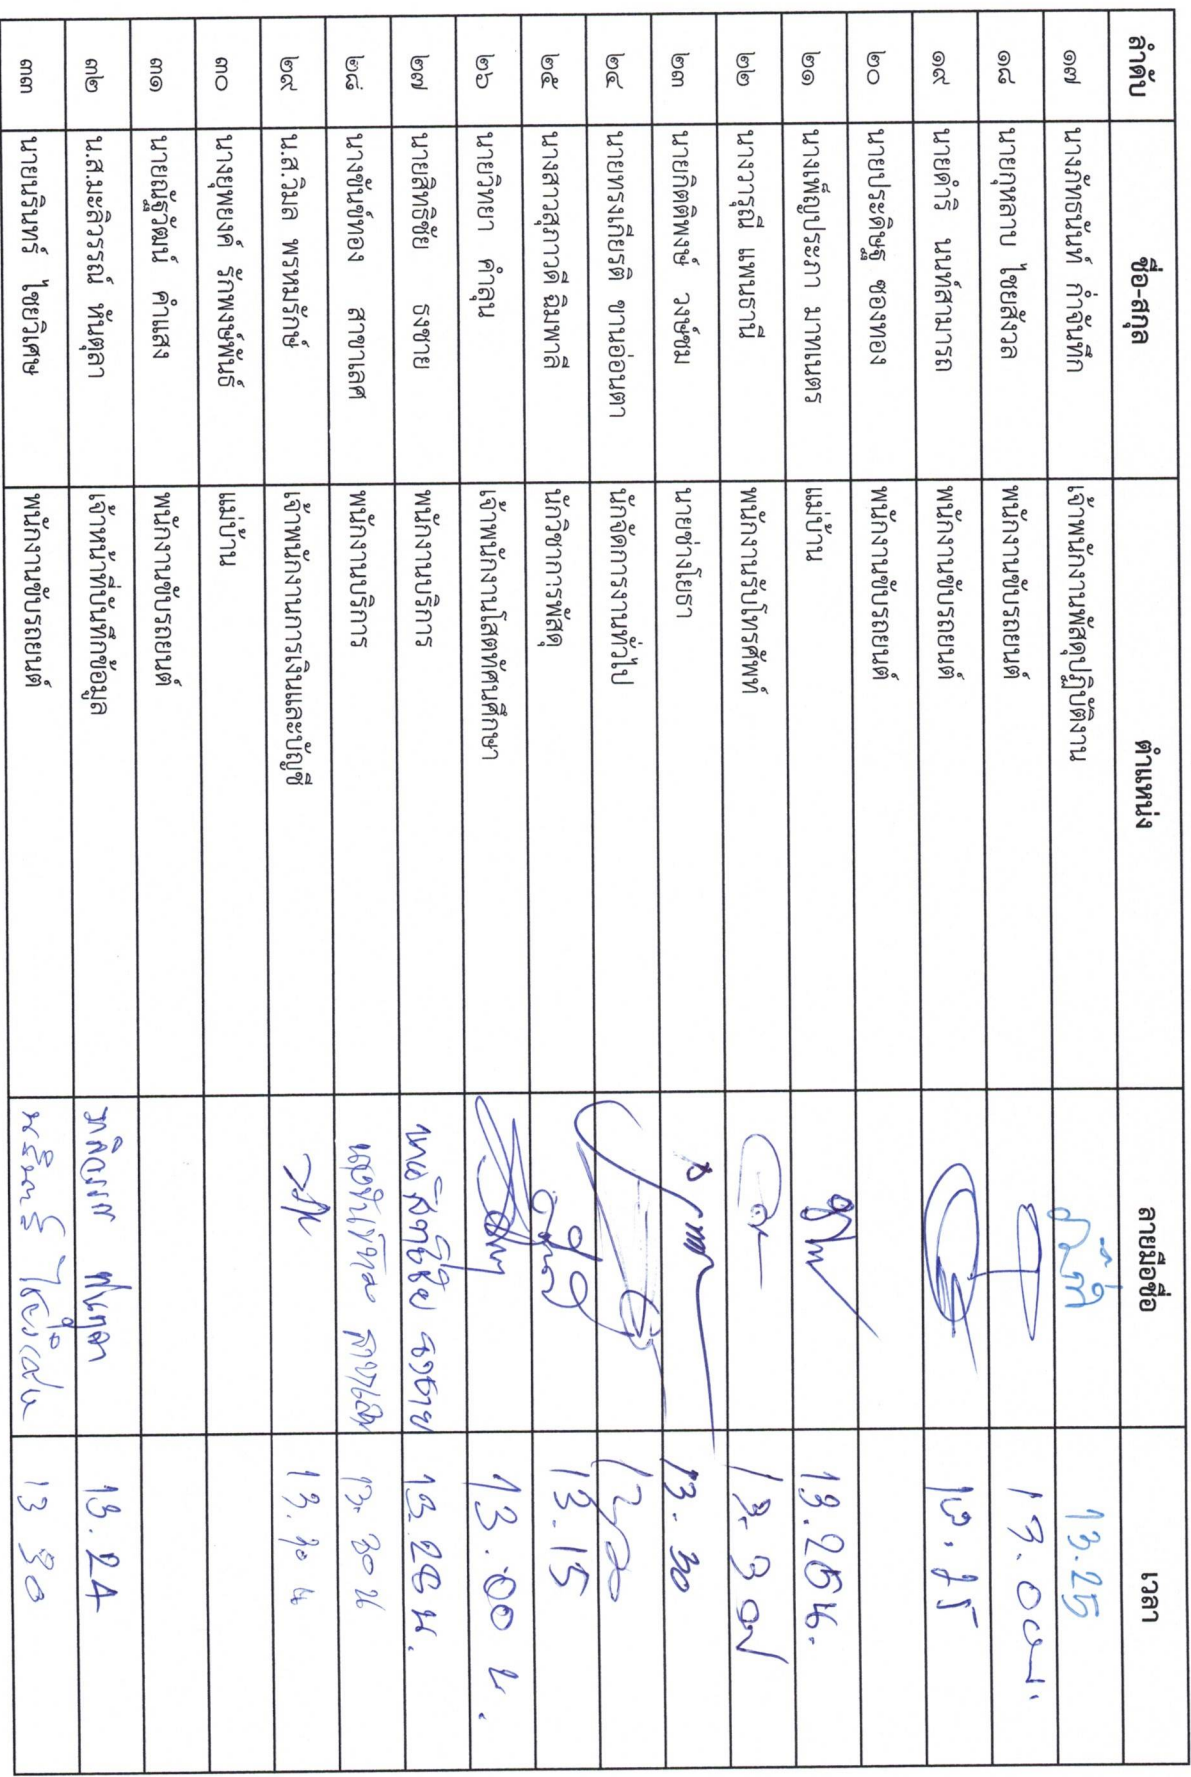 ลำดับ ชื่อ-สกุล ตำแหน่ง ลายมือชื่อ เวลา
๑๗ นางภัทรนันท์ ก่ำจันทึก เจ้าพนักงานพัสดุปฏิบัติงาน 13.25
๑๘ นายกุหลาบ ไชยสังวล พนักงานขับรถยนต์ 13.00น.
๑๙ นายดำริ นนท์สามารถ พนักงานขับรถยนต์
๒๐ นายประดิษฐ ซองทอง พนักงานขับรถยนต์
๒๑ นางเพ็ญประภา มาทเนตร แม่บ้าน 13.25น.
๒๒ นางวารุณี แพนธานี พนักงานรับโทรศัพท์
๒๓ นายกิตติพงษ์ วงษ์ชม นายช่างโยธา 13.30
๒๔ นายทรงเกียรติ ขานอ่อนตา นักจัดการงานทั่วไป
๒๕ นางสาวสุภาวดี ฉิมพาลี นักวิชาการพัสดุ 13.15
๒๖ นายวิทยา คำลุน เจ้าพนักงานโสตทัศนศึกษา 13.00 น.
๒๗ นายสิทธิชัย ธงชาย พนักงานบริการ นายสิทธิชัย ธงชาย 13.28 น.
๒๘ นางขันข์ทอง สาขาเลศ พนักงานบริการ 13.30 น
๒๙ น.ส.วิมล พรหมรักษ์ เจ้าพนักงานการเงินและบัญชี
๓๐ นางยุพยงค์ รักพงษ์พันธ์ แม่บ้าน
๓๑ นายณัฐวัฒน์ คำแสง พนักงานขับรถยนต์
๓๒ น.ส.มะลิวรรณ์ หันตุลา เจ้าหน้าที่บันทึกข้อมูล 13.24
๓๓ นายนรินทร์ ไชยวิเศษ พนักงานขับรถยนต์ 13 30